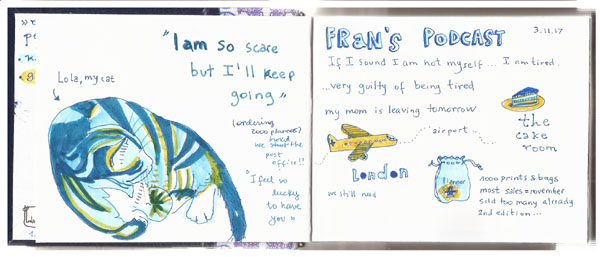 Lola, my cat
"I am so scare
but I'll keep
going"
(ordering
2000 planners)
we shut the
post
office!!
"I feel so
lucky
to have
you"
FRAN'S PODCAST
3.11.17
If I sound I am not myself... I am tired.
...very guilty of being tired
my mom is leaving tomorrow
airport
the
cake
room
LONDON
we still need
planner
1000 prints & bags
most sales = november
sold too many already
2nd edition...